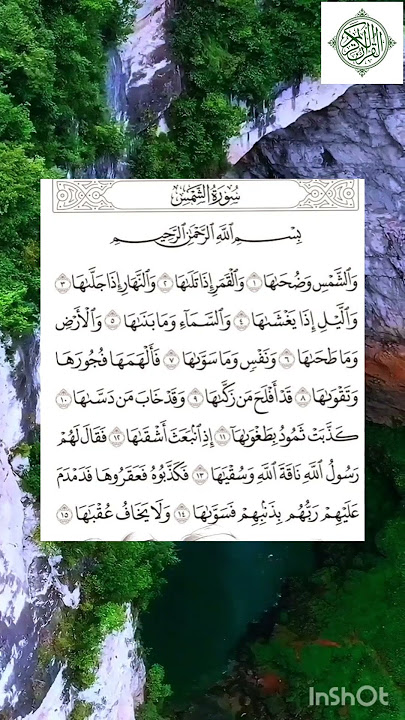 القرآن الكريم
سورة الشمس
بسم الله الرحمن الرحيم
وَالشَّمْسِ وَضُحَىٰهَا ١ وَالْقَمَرِ إِذَا تَلَىٰهَا ٢ وَالنَّهَارِ إِذَا جَلَّىٰهَا ٣
وَالَّيْلِ إِذَا يَغْشَىٰهَا ٤ وَالسَّمَاءِ وَمَا بَنَىٰهَا ٥ وَالْأَرْضِ
وَمَا طَحَىٰهَا ٦ وَنَفْسٍ وَمَا سَوَّىٰهَا ٧ فَأَلْهَمَهَا فُجُورَهَا
وَتَقْوَىٰهَا ٨ قَدْ أَفْلَحَ مَن زَكَّىٰهَا ٩ وَقَدْ خَابَ مَن دَسَّىٰهَا ١٠
كَذَّبَتْ ثَمُودُ بِطَغْوَىٰهَا ١١ إِذِ انۢبَعَثَ أَشْقَىٰهَا ١٢ فَقَالَ لَهُمْ
رَسُولُ اللَّهِ نَاقَةَ اللَّهِ وَسُقْيَٰهَا ١٣ فَكَذَّبُوهُ فَعَقَرُوهَا فَدَمْدَمَ
عَلَيْهِمْ رَبُّهُم بِذَنۢبِهِمْ فَسَوَّىٰهَا ١٤ وَلَا يَخَافُ عُقْبَٰهَا ١٥
InShOt